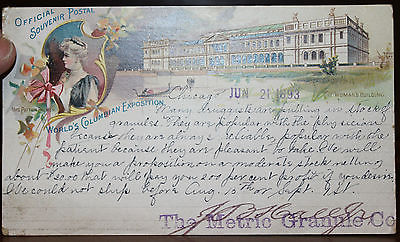 OFFICIAL
SOUVENIR POSTAL
MRS. POTTER
WORLD'S COLUMBIAN EXPOSITION.
WOMAN'S BUILDING.
Chicago JUN 21 1893
Many druggists are putting in stock of
granules. They are popular with the physician
because they are always reliable, popular with the
patient because they are pleasant to take. We will
make you a proposition on a moderate stock netting
about $20.00 that will pay you 200 per cent profit if you desire it.
We could not ship before Aug. 15th or Sept. 1st.
The Metric Granule Co